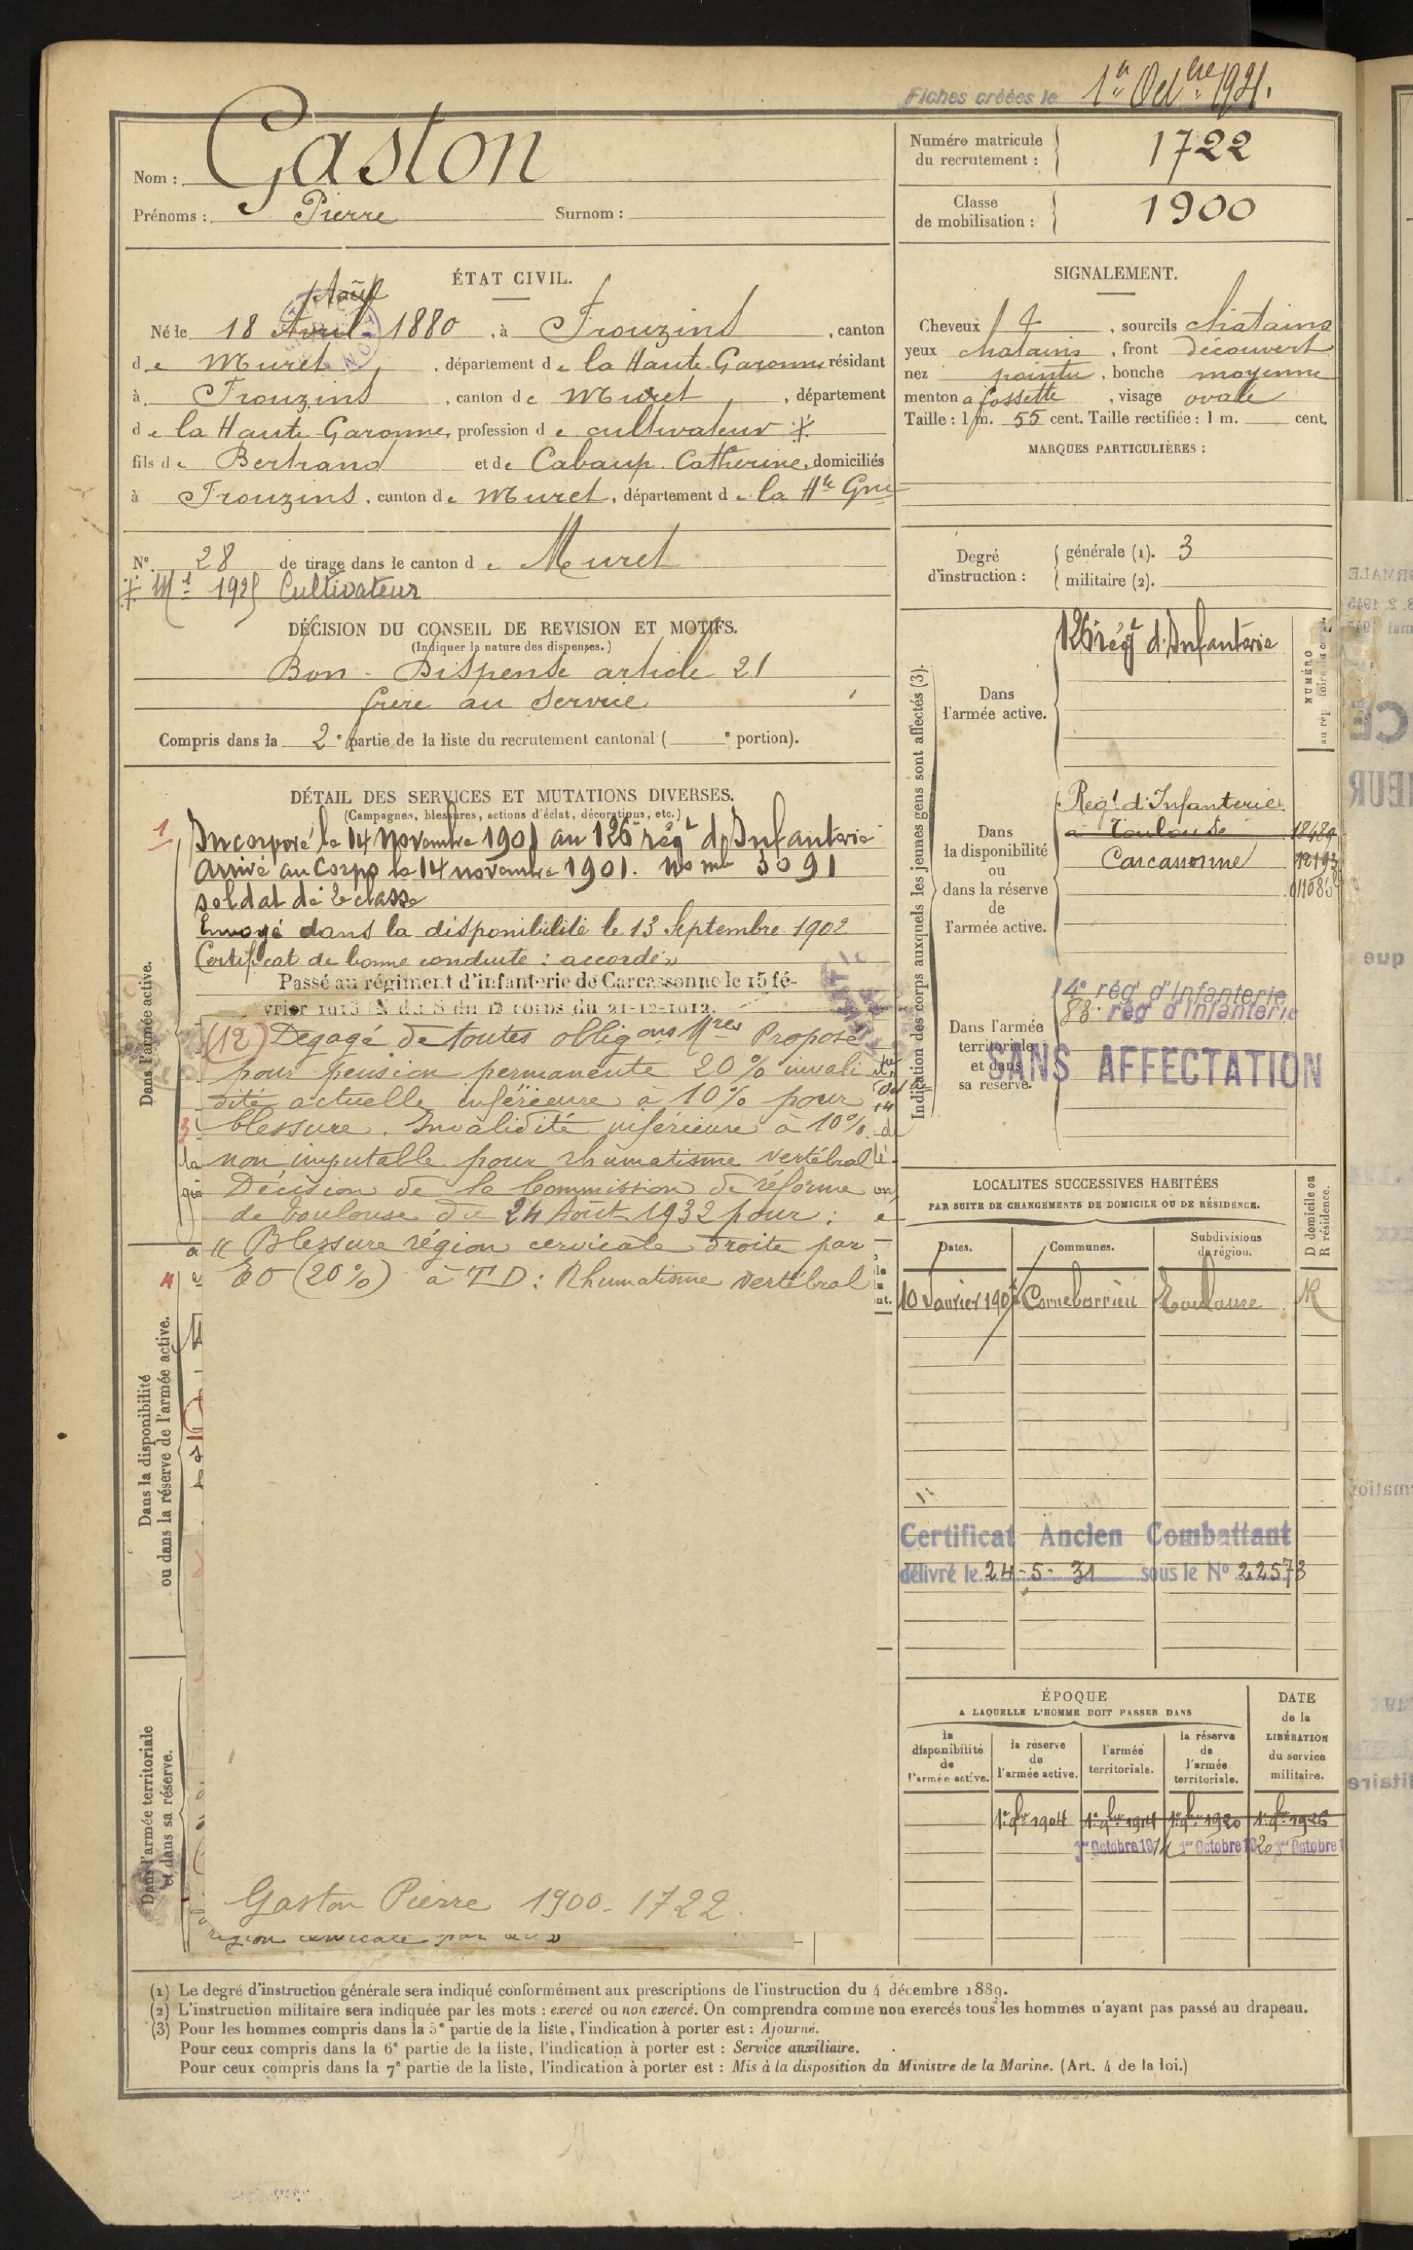 Fiches créées le 1er Octbre 1921.
Nom : Gaston
Prénoms : Pierre Surnom :
Numéro matricule
du recrutement : 1722
Classe
de mobilisation : 1900
ÉTAT CIVIL.
Août
Né le 18 Avril 1880, à Frouzins, canton
de Muret, département de la Haute-Garonne résidant
à Frouzins, canton de Muret, département
de la Haute-Garonne, profession de cultivateur
fils de Bertrand et de Cabaup Catherine, domiciliés
à Frouzins, canton de Muret, département de la Hte Gne
N° 28 de tirage dans le canton de Muret
1925 Cultivateur
SIGNALEMENT.
Cheveux, sourcils chatains
yeux chatains, front découvert
nez pointu, bouche moyenne
menton à fossette, visage ovale
Taille : 1 m. 55 cent. Taille rectifiée : 1 m. cent.
MARQUES PARTICULIÈRES :
Degré
d'instruction :
générale (1). 3
militaire (2).
DÉCISION DU CONSEIL DE REVISION ET MOTIFS.
(Indiquer la nature des dispenses.)
Bon - Dispensé article 21
frère au service
Compris dans la 2e partie de la liste du recrutement cantonal ( e portion).
DÉTAIL DES SERVICES ET MUTATIONS DIVERSES.
(Campagnes, blessures, actions d'éclat, décorations, etc.)
Dans l'armée active.
1
Incorporé le 14 novembre 1901 au 126e régt d'Infanterie
Arrivé au Corps le 14 novembre 1901. No mle 3091
soldat de 2e classe
Envoyé dans la disponibilité le 13 Septembre 1902
Certificat de bonne conduite : accordé
Passé au régiment d'infanterie de Carcassonne le 15 fé-
vrier 1913 (N du S du 17e corps du 21-12-1912.
(12) Dégagé de toutes obligons Mres Proposé
pour pension permanente 20% invali
dité actuelle inférieure à 10% pour
blessure. Invalidité inférieure à 10%
non imputable pour rhumatisme vertébral
Décision de la Commission de réforme
de Toulouse du 24 Août 1932 pour :
"Blessure région cervicale droite par
EO (20%) à TD : Rhumatisme vertébral
Gaston Pierre 1900-1722.
région cervicale par
Dans la disponibilité
ou dans la réserve de l'armée active.
Dans l'armée territoriale
et dans sa réserve.
Indication des corps auxquels les jeunes gens sont affectés (3).
NUMÉRO
Dans
l'armée active.
126e régt d'Infanterie
Dans
la disponibilité
ou
dans la réserve
de
l'armée active.
Régt d'Infanterie
à Toulouse
Carcassonne
Dans l'armée
territoriale
et dans
sa réserve.
14e rég d'Infanterie
83e rég d'Infanterie
SANS AFFECTATION
LOCALITES SUCCESSIVES HABITÉES
PAR SUITE DE CHANGEMENTS DE DOMICILE OU DE RÉSIDENCE.
Dates. Communes. Subdivisions
de région.
D domicile ou
R résidence.
10 Janvier 190 Cornebarrieu Toulouse R
Certificat Ancien Combattant
délivré le 24-5-31 sous le N° 22573
ÉPOQUE
A LAQUELLE L'HOMME DOIT PASSER DANS
la
disponibilité
de
l'armée active.
la réserve
de
l'armée active.
l'armée
territoriale.
la réserve
de
l'armée
territoriale.
DATE
de la
LIBÉRATION
du service
militaire.
1er 9bre 1904 1er 9bre 1914 1er 9bre 1920 1er 9bre 1926
1er Octobre 1914 1er Octobre 1920 1er Octobre
(1) Le degré d'instruction générale sera indiqué conformément aux prescriptions de l'instruction du 4 décembre 1889.
(2) L'instruction militaire sera indiquée par les mots : exercé ou non exercé. On comprendra comme non exercés tous les hommes n'ayant pas passé au drapeau.
(3) Pour les hommes compris dans la 5e partie de la liste, l'indication à porter est : Ajourné.
Pour ceux compris dans la 6e partie de la liste, l'indication à porter est : Service auxiliaire.
Pour ceux compris dans la 7e partie de la liste, l'indication à porter est : Mis à la disposition du Ministre de la Marine. (Art. 4 de la loi.)